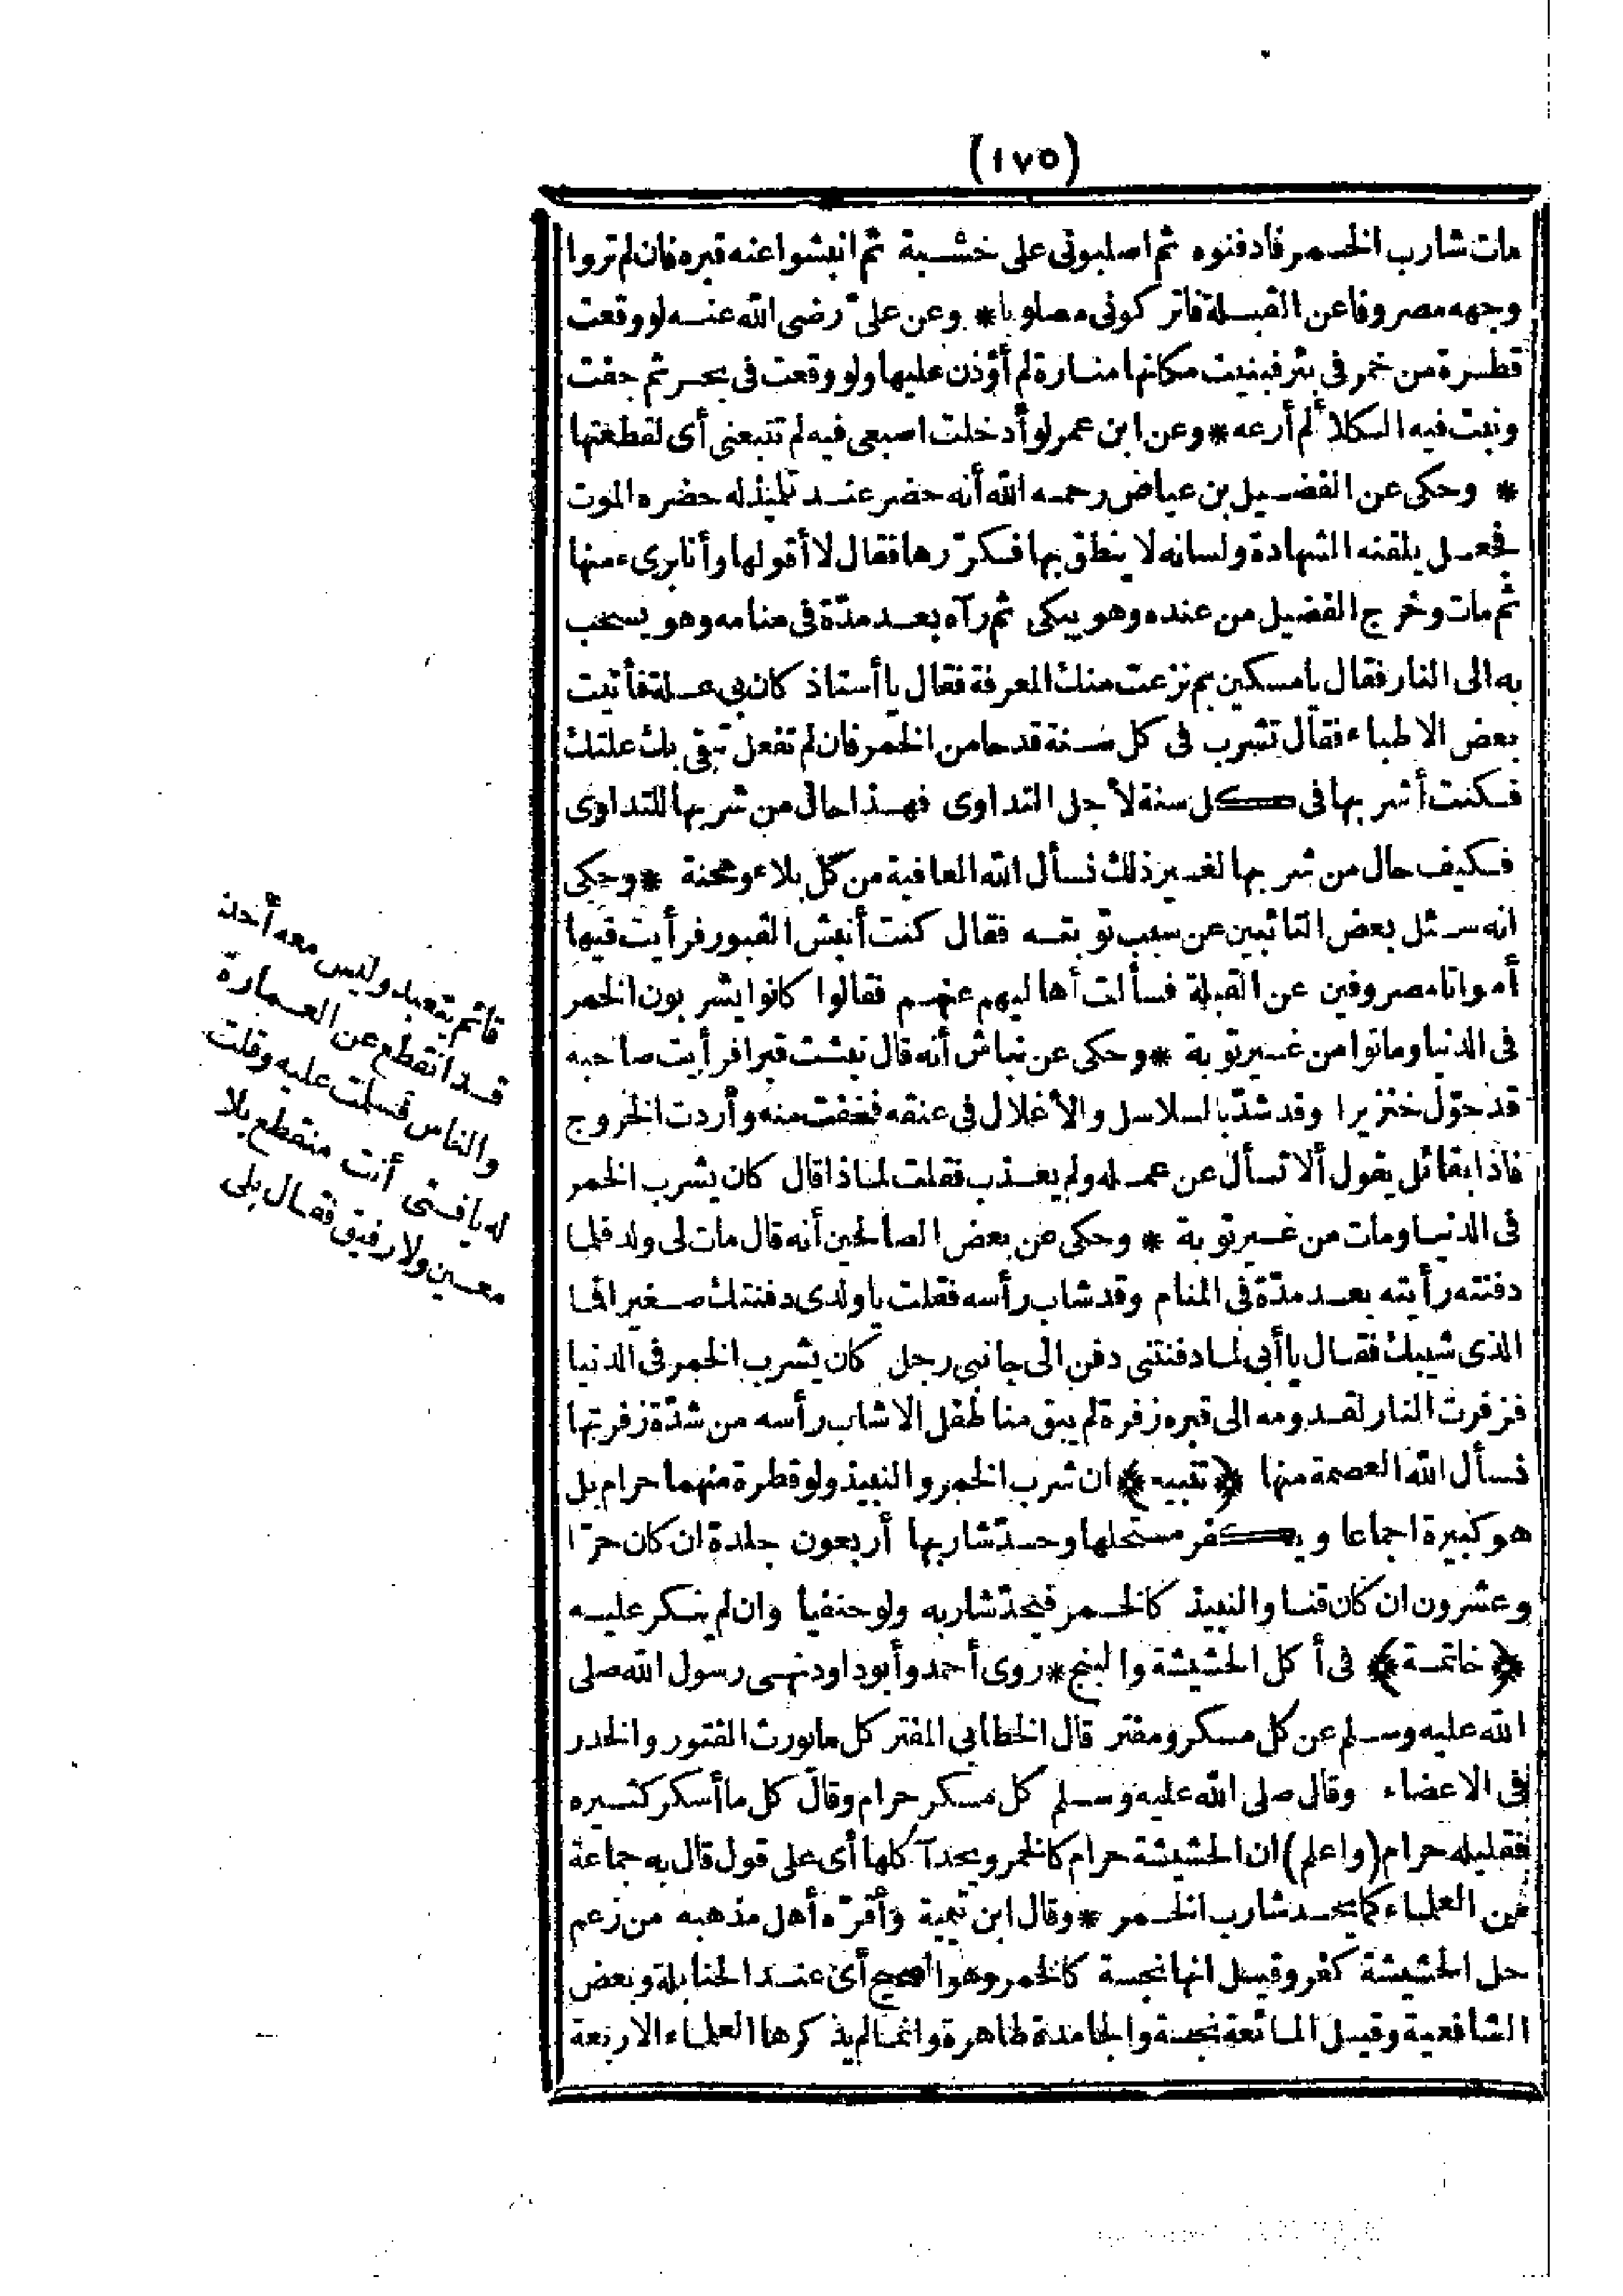 (١٧٥)
مات شارب الخمر فادفنوه ثم اصلبونى على خشبة ثم انبشوا عنه قبره فان لم تروا
وجهه مصروفا عن القبلة فاتركونى مصلوبا * وعن علىّ رضى الله عنه لو وقعت
قطرة من خمر فى بئر فبنيت مكانها منارة لم أؤذن عليها ولو وقعت فى بحر ثم جفت
ونبت فيه الكلأ لم أرعه * وعن ابن عمر لو أدخلت اصبعى فيه لم تتبعنى أى لقطعتها
* وحكى عن الفضيل بن عياض رحمه الله أنه حضر عند تلميذ له حضره الموت
فجعل يلقنه الشهادة ولسانه لا ينطق بها فكرّرها فقال لا أقولها وأنا برىء منها
ثم مات وخرج الفضيل من عنده وهو يبكى ثم رآه بعد مدّة فى منامه وهو يسحب
به الى النار فقال يا مسكين بم نزعت منك المعرفة فقال يا أستاذ كان بى علة فأتيت
بعض الاطباء فقال تشرب فى كل سنة قدحا من الخمر فان لم تفعل تبقى بك علتك
فكنت أشربها فى كل سنة لأجل التداوى فهذا حال من شربها للتداوى
فكيف حال من شربها لغير ذلك نسأل الله العافية من كل بلاء ومحنة * وحكى
انه سئل بعض التائبين عن سبب توبته فقال كنت أنبش القبور فرأيت فيها
أمواتا مصروفين عن القبلة فسألت أهاليهم عنهم فقالوا كانوا يشربون الخمر
فى الدنيا وماتوا من غير توبة * وحكى عن نباش أنه قال نبشت قبرا فرأيت صاحبه
قد حوّل خنزيرا وقد شدّ بالسلاسل والأغلال فى عنقه فخفت منه وأردت الخروج
فاذا بقائل يقول ألا تسأل عن عمله ولم يعذب فقلت لماذا قال كان يشرب الخمر
فى الدنيا ومات من غير توبة * وحكى عن بعض الصالحين أنه قال مات لى ولد فلما
دفنته رأيته بعد مدّة فى المنام وقد شاب رأسه فقلت يا ولدى دفنتك صغيرا فما
الذى شيبك فقال يا أبى لما دفنتنى دفن الى جانبى رجل كان يشرب الخمر فى الدنيا
فزفرت النار لقدومه الى قبره زفرة لم يبق منا طفل الا شاب رأسه من شدّة زفرتها
نسأل الله العصمة منها ﴿تنبيه﴾ ان شرب الخمر والنبيذ ولو قطرة منهما حرام بل
هو كبيرة اجماعا ويكفر مستحلها وحدّ شاربها أربعون جلدة ان كان حرّا
وعشرون ان كان قنا والنبيذ كالخمر فيحدّ شاربه ولو حنفيا وان لم ينكر عليه
﴿خاتمة﴾ فى أكل الحشيشة والبنج * روى أحمد وأبو داود نهى رسول الله صلى
الله عليه وسلم عن كل مسكر ومفتر قال الخطابى المفتر كل ما يورث الفتور والخدر
فى الاعضاء وقال صلى الله عليه وسلم كل مسكر حرام وقال كل ما أسكر كثيره
فقليله حرام (واعلم) ان الحشيشة حرام كالخمر ويحد آكلها أى على قول قال به جماعة
من العلماء كما يحد شارب الخمر * وقال ابن تيمية وأقرّه أهل مذهبه من زعم
حل الحشيشة كفر وقيل انها نجسة كالخمر وهو الصحيح أى عند الحنابلة وبعض
الشافعية وقيل المائعة نجسة والجامدة طاهرة وانما لم يذكرها العلماء الاربعة
قائم يتعبد وليس معه أحد
قد انقطع عن العمارة
والناس فسلمت عليه وقلت
له يا فتى أنت منقطع بلا
معين ولا رفيق فقال بلى